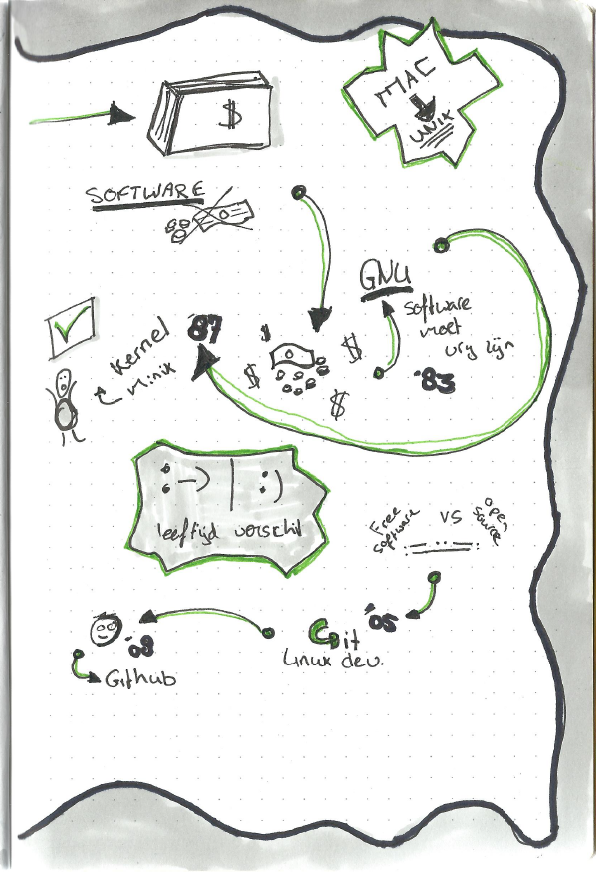 $
MAC
UNIX
SOFTWARE
GNU
software
moet
vrij zijn
'83
'87
Kernel
Minix
$
$
$
$
:-) | :)
leeftijd verschil
Free
software
VS
open
source
'05
Git
Linux dev.
'08
Github